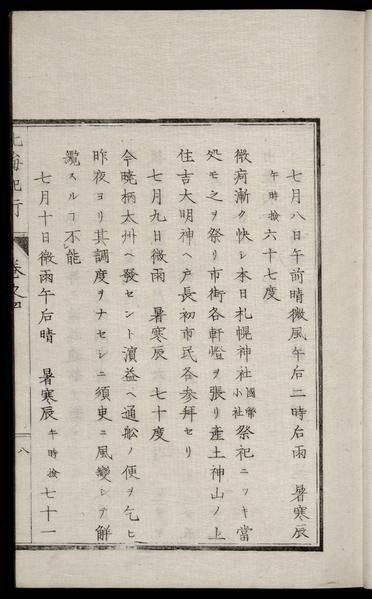 七月八日午前晴微風午后二時后雨　暑寒辰
午時検六十七度
微痾漸ク快シ本日札幌神社國幣小社祭祀ニツキ當
処モ之ヲ祭リ市街各軒燈ヲ張リ産土神山ノ上
住吉大明神ヘ戸長初市民各参拜セリ
七月九日微雨　暑寒辰　七十度
今曉柄太州ヘ發セント濱益ヘ通舩ノ便ヲ乞ヒ
昨夜ヨリ其調度ヲナセシニ須臾ニ風變シテ解
纜スルヿ不レ能
七月十日微雨午后晴　暑寒辰　午時検七十一
北海紀行　卷之四　八